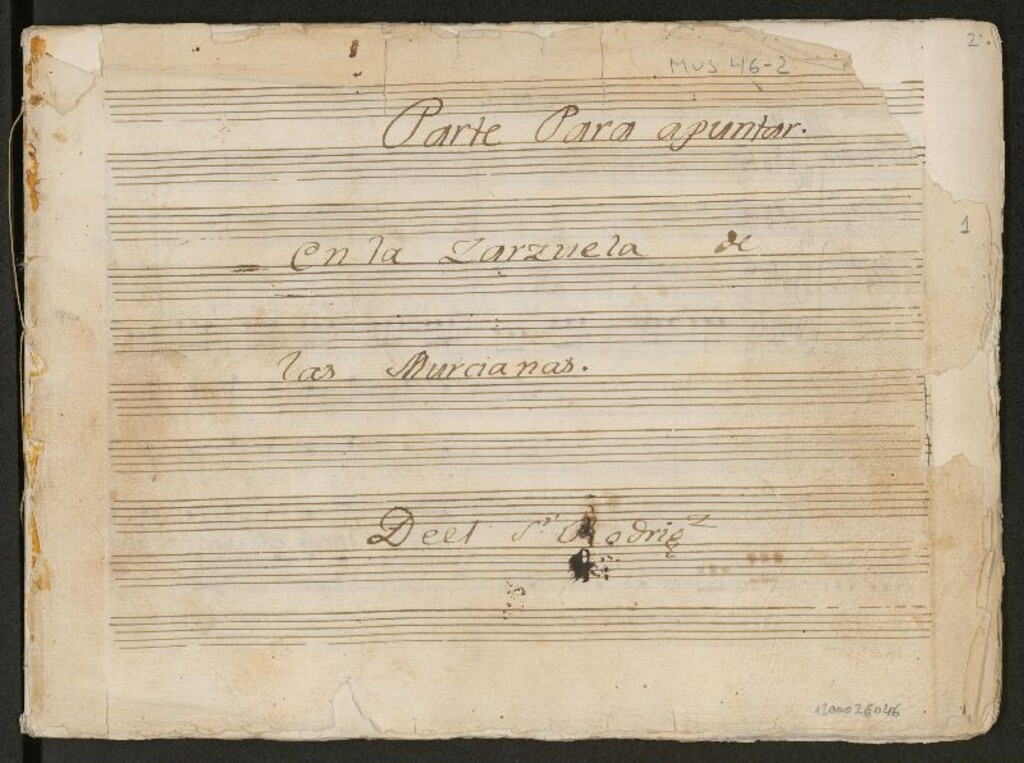 2.
MUS 46-2
Parte Para apuntar.
1
en la Zarzuela de
las Murcianas.
Deel Sr Rodrigz
1200026046